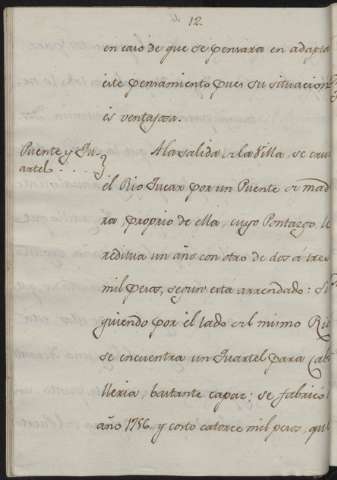 12.
en caso de que se pensara en adapta
este pensamiento pues su situacion
es ventajosa.
Puente y Qu-
artel....
A la salida de la Villa, se cru
el Rio Jucar por un Puente de mad
ra, proprio de ella, cuyo Pontazgo, le
reditua un año con otro de dos a tres
mil pesos, segun esta arrendado: Si
guiendo por el lado del mismo Rio
se encuentra un Quartel para Cab
lleria, bastante capaz; se fabricó
año 1756. y costó catorce mil pesos, qu